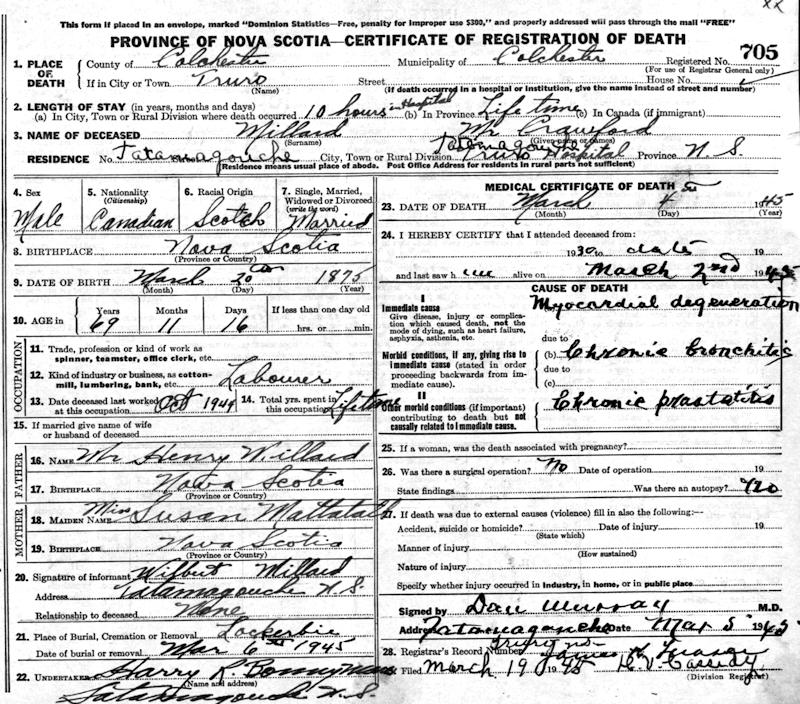 This form if placed in an envelope, marked "Dominion Statistics—Free, penalty for improper use $300," and properly addressed will pass through the mail "FREE"
PROVINCE OF NOVA SCOTIA—CERTIFICATE OF REGISTRATION OF DEATH
705
1. PLACE OF DEATH County of Colchester Municipality of Colchester Registered No.
(For use of Registrar General only)
If in City or Town Truro Street House No.
(Name) (If death occurred in a hospital or institution, give the name instead of street and number)
2. LENGTH OF STAY (in years, months and days)
(a) In City, Town or Rural Division where death occurred 10 hours in Hospital (b) In Province Life time (c) In Canada (if immigrant)
3. NAME OF DECEASED Millard Mr Crawford
(Surname) (Given names)
RESIDENCE No. Tatamagouche City, Town or Rural Division Tatamagouche Truro Hospital Province N. S.
(Residence means usual place of abode. Post Office Address for residents in rural parts not sufficient)
4. Sex Male
5. Nationality (Citizenship) Canadian
6. Racial Origin Scotch
7. Single, Married, Widowed or Divorced (write the word) Married
8. BIRTHPLACE Nova Scotia
(Province or Country)
9. DATE OF BIRTH March 1875
(Month) (Day) (Year)
10. AGE in Years 69 Months 11 Days 16 If less than one day old hrs. or min.
OCCUPATION
11. Trade, profession or kind of work as spinner, teamster, office clerk, etc.
12. Kind of industry or business, as cotton-mill, lumbering, bank, etc. Labourer
13. Date deceased last worked at this occupation Oct 1944 14. Total yrs. spent in this occupation Life time
15. If married give name of wife or husband of deceased
FATHER
16. NAME Mr Henry Millard
17. BIRTHPLACE Nova Scotia
(Province or Country)
MOTHER
18. MAIDEN NAME Miss Susan Mattatall
19. BIRTHPLACE Nova Scotia
(Province or Country)
20. Signature of informant Wilbert Millard
Address Tatamagouche N.S.
Relationship to deceased None
21. Place of Burial, Cremation or Removal Lockerbie
Date of burial or removal Mar 6th 1945
22. UNDERTAKER Harry R
(Name and address)
Tatamagouche N.S.
MEDICAL CERTIFICATE OF DEATH
23. DATE OF DEATH March 4 1945
(Month) (Day) (Year)
24. I HEREBY CERTIFY that I attended deceased from:
1930 to date 19
and last saw h im alive on March 2nd 1945
CAUSE OF DEATH
I
Immediate cause Myocardial degeneration
Give disease, injury or complication which caused death, not the mode of dying, such as heart failure, asphyxia, asthenia, etc.
due to
Morbid conditions, if any, giving rise to immediate cause (stated in order proceeding backwards from immediate cause).
(b) Chronic bronchitis
due to
(c)
II
Other morbid conditions (if important) contributing to death but not causally related to immediate cause.
Chronic prostatitis
25. If a woman, was the death associated with pregnancy?
26. Was there a surgical operation? No Date of operation 19
State findings Was there an autopsy? No
27. If death was due to external causes (violence) fill in also the following:—
Accident, suicide or homicide? Date of injury 19
(State which)
Manner of injury
(How sustained)
Nature of injury
Specify whether injury occurred in industry, in home, or in public place
Signed by Dan Murray M.D.
Address Tatamagouche Date Mar 5 1945
28. Registrar's Record Number
Filed March 19 1945 H V Cassidy
(Division Registrar)